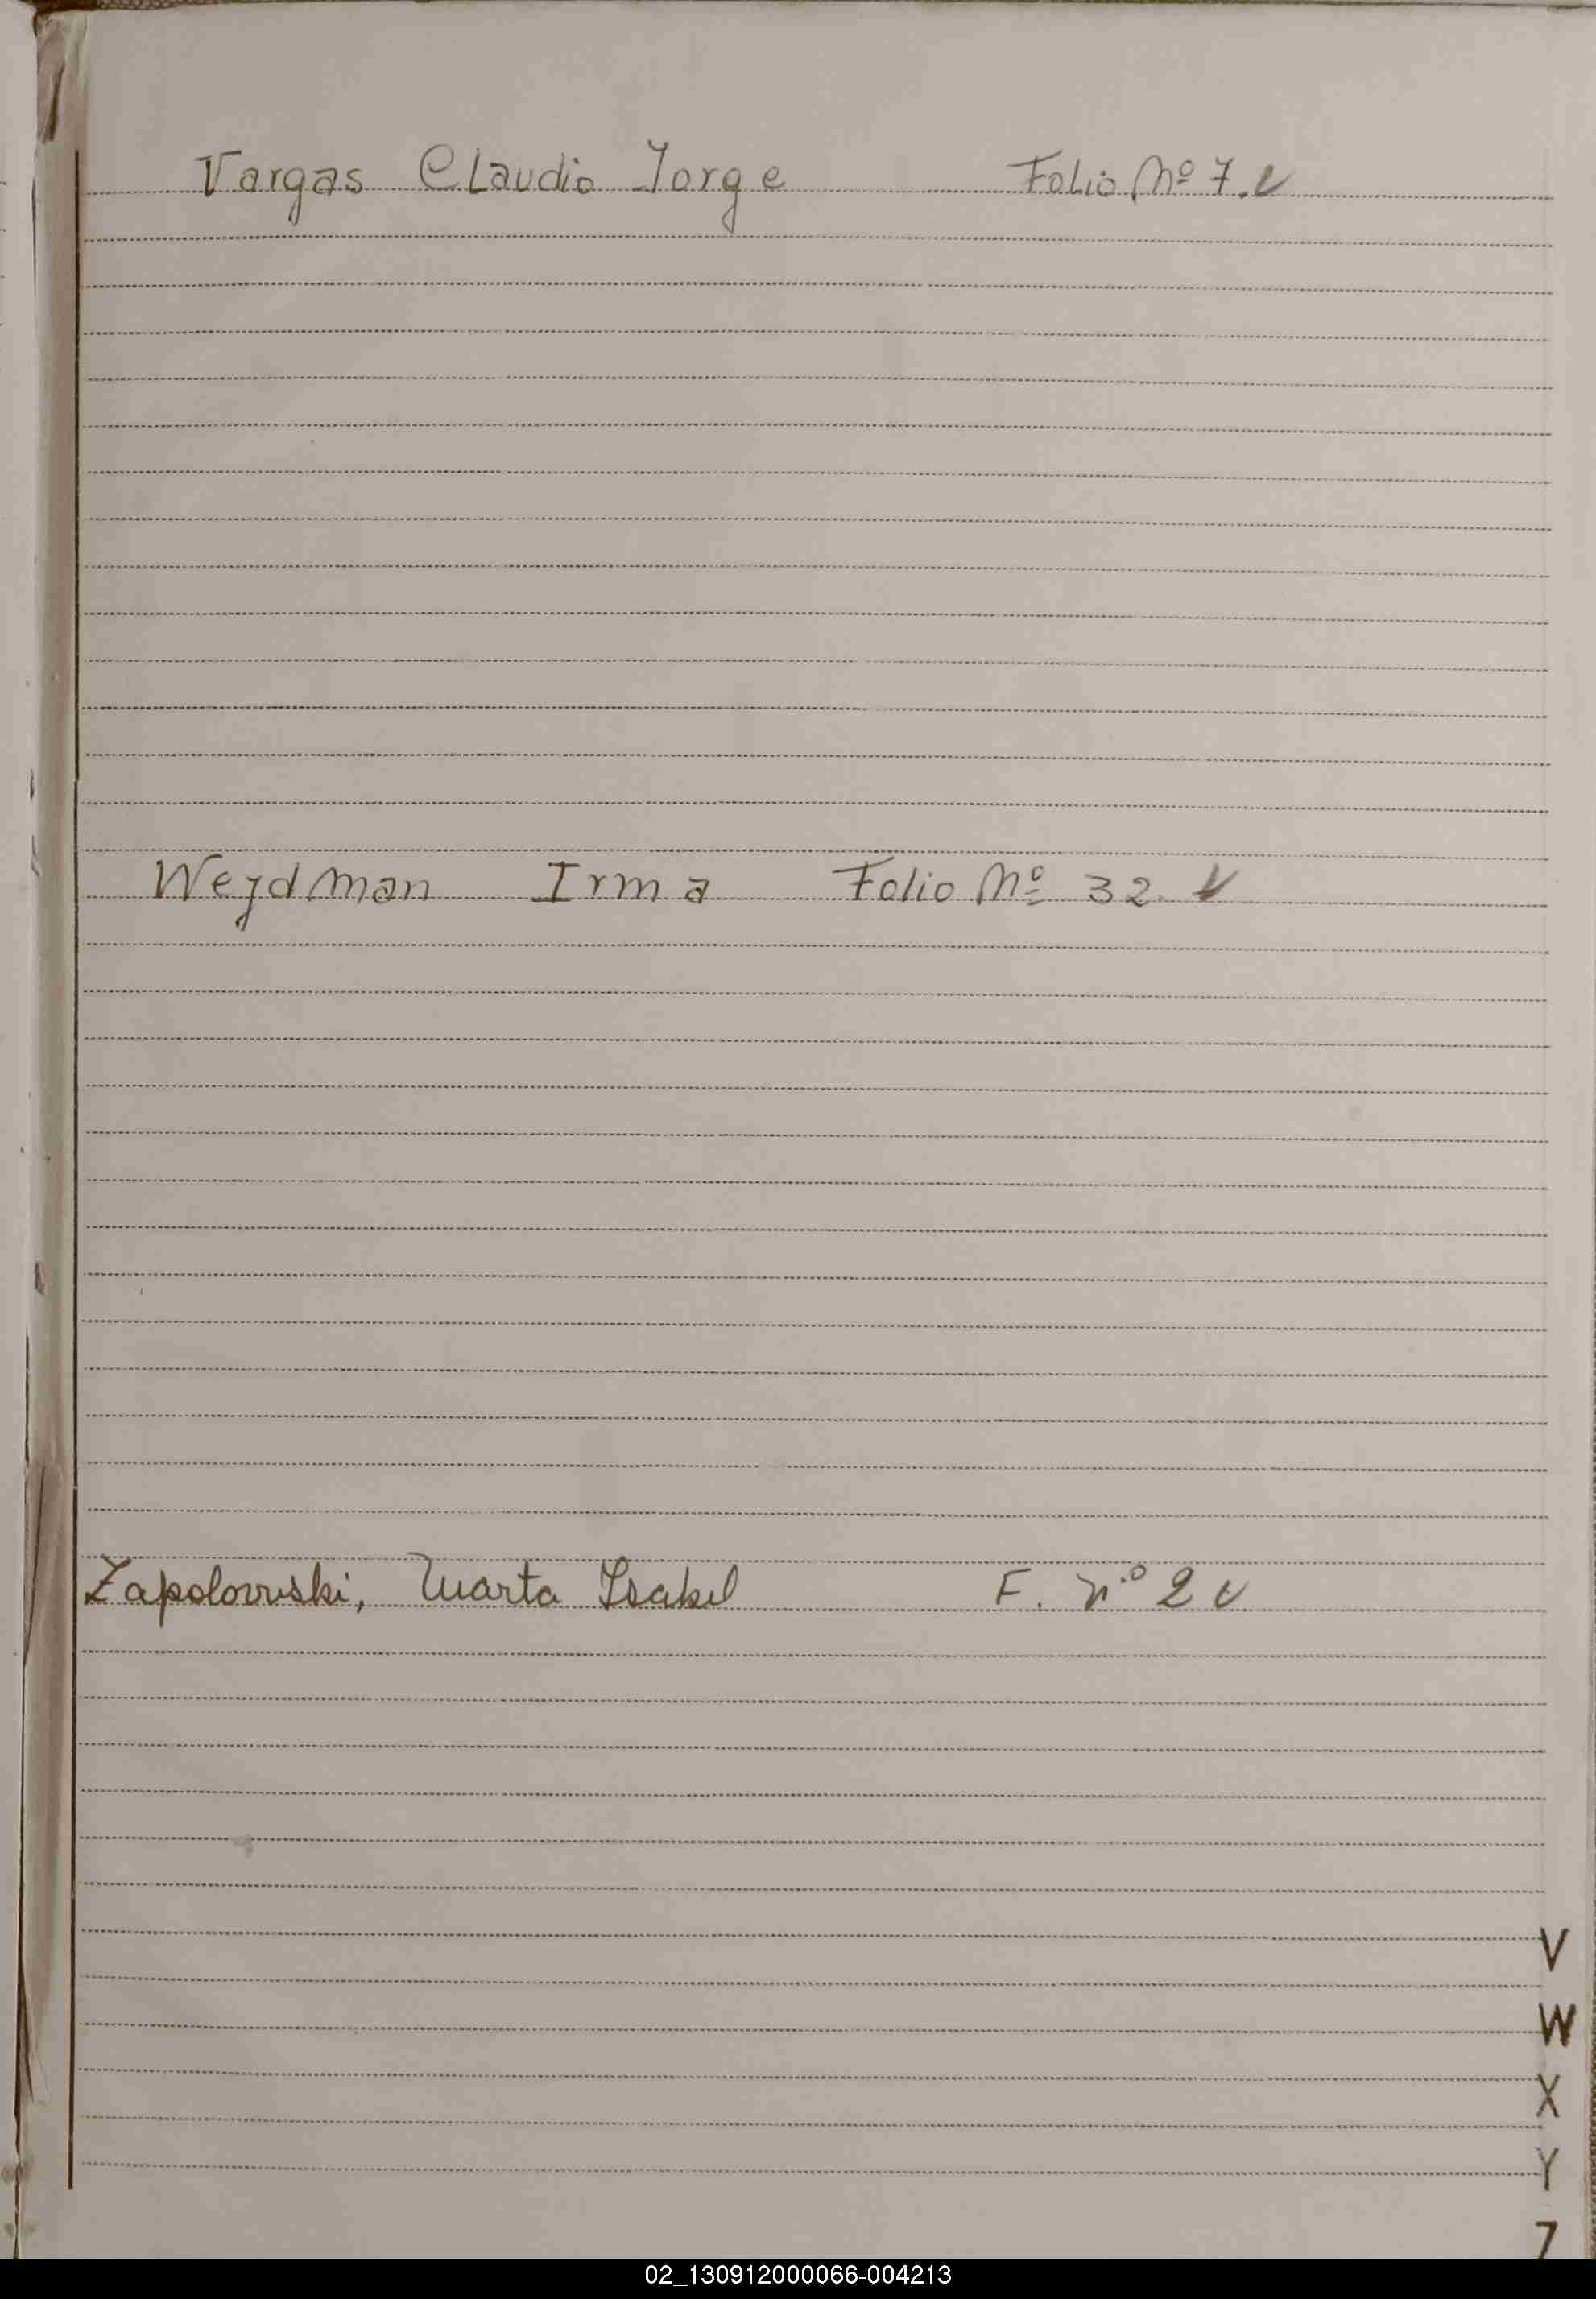 Vargas Claudio Jorge Folio Nº 7.v
Weydman Irma Folio Nº 32. v
Zapolowski, Marta Isabel F. nº 2 v
V
W
X
Y
Z
02_130912000066-004213